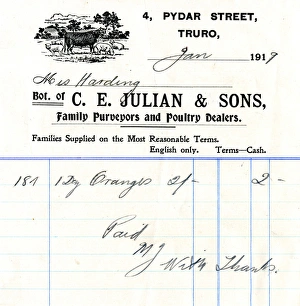 4, PYDAR STREET,
TRURO,
Jan 1919
Mrs Harding
Bot. of C. E. JULIAN & SONS,
Family Purveyors and Poultry Dealers.
Families Supplied on the Most Reasonable Terms.
English only. Terms—Cash.
181 1 Dz Oranges 2/- 2 -
Paid
MJ
With Thanks.